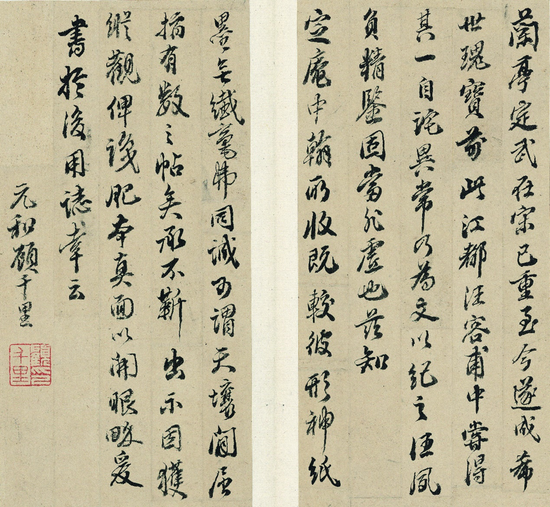 蘭亭定武在宋已重至今遂成希
世瑰寶前此江都汪容甫中嘗得
其一自詫異常乃為文以紀之汪夙
負精鑒固當非虛也茲知
定庵中翰所收既較彼形神紙
墨无纖毫弗同誠可謂天壤間屈
指有數之帖矣承不靳出示因獲
縱觀俾識肥本真面以開眼界爰
書於後用誌幸云
元和顧千里